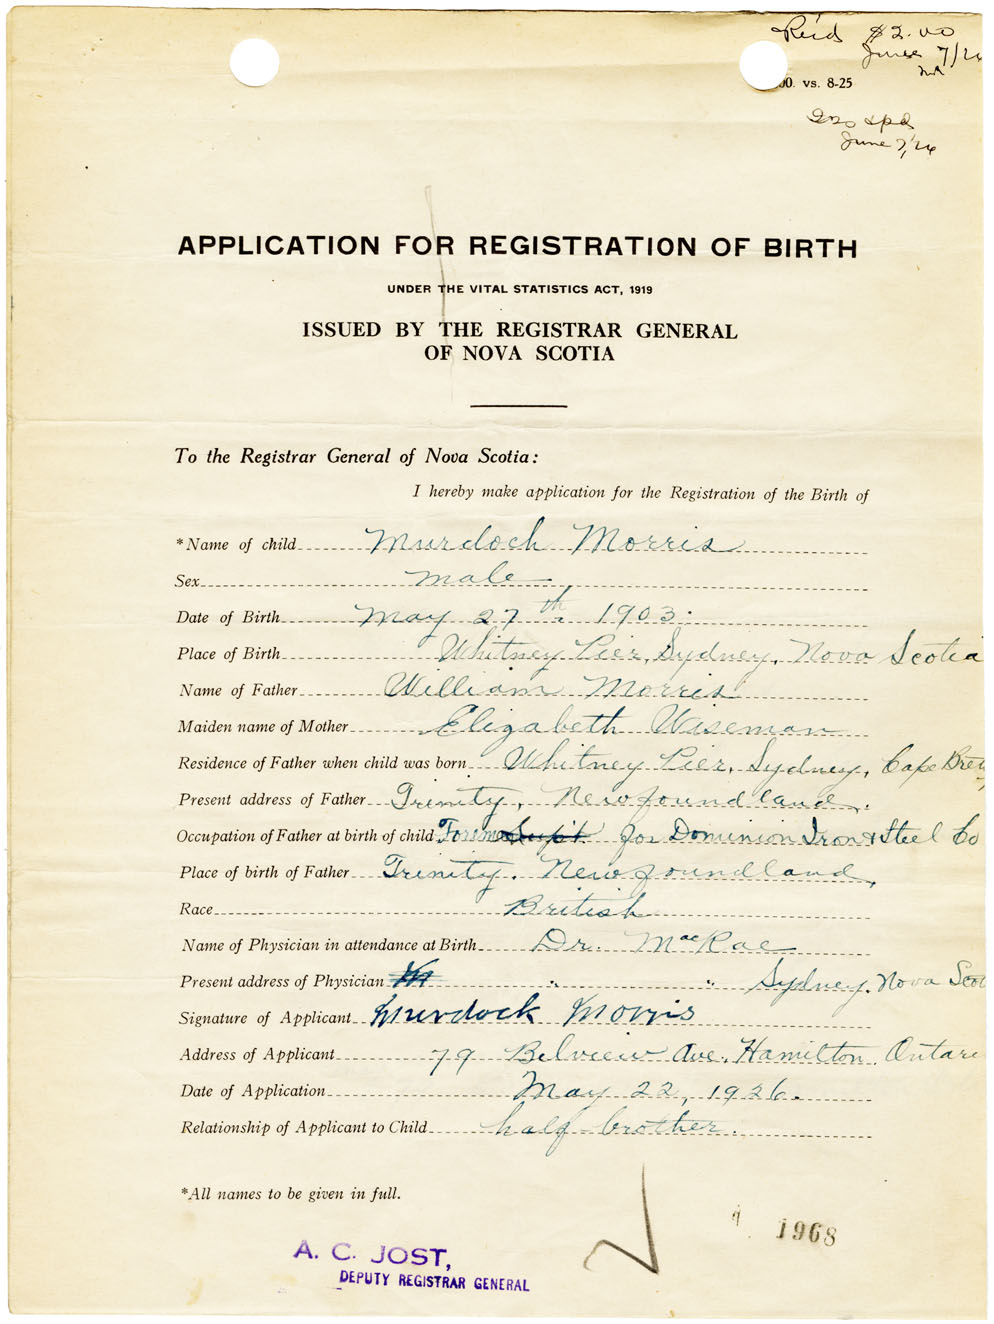 Rec'd $2.00
June 7/26
00. vs. 8-25
June 7/26
APPLICATION FOR REGISTRATION OF BIRTH
UNDER THE VITAL STATISTICS ACT, 1919
ISSUED BY THE REGISTRAR GENERAL
OF NOVA SCOTIA
To the Registrar General of Nova Scotia:
I hereby make application for the Registration of the Birth of
*Name of child Murdoch Morris
Sex male
Date of Birth May 27th, 1903.
Place of Birth Whitney Pier, Sydney, Nova Scotia
Name of Father William Morris
Maiden name of Mother Elizabeth Wiseman
Residence of Father when child was born Whitney Pier, Sydney, Cape Bret
Present address of Father Trinity, Newfoundland.
Occupation of Father at birth of child Foreman Sup't for Dominion Iron & Steel Co
Place of birth of Father Trinity, Newfoundland,
Race British
Name of Physician in attendance at Birth Dr. MacRae
Present address of Physician " " Sydney, Nova Scot
Signature of Applicant Murdock Morris
Address of Applicant 79 Belview Ave. Hamilton, Ontari
Date of Application May 22, 1926.
Relationship of Applicant to Child half brother.
*All names to be given in full.
1968
A. C. JOST,
DEPUTY REGISTRAR GENERAL